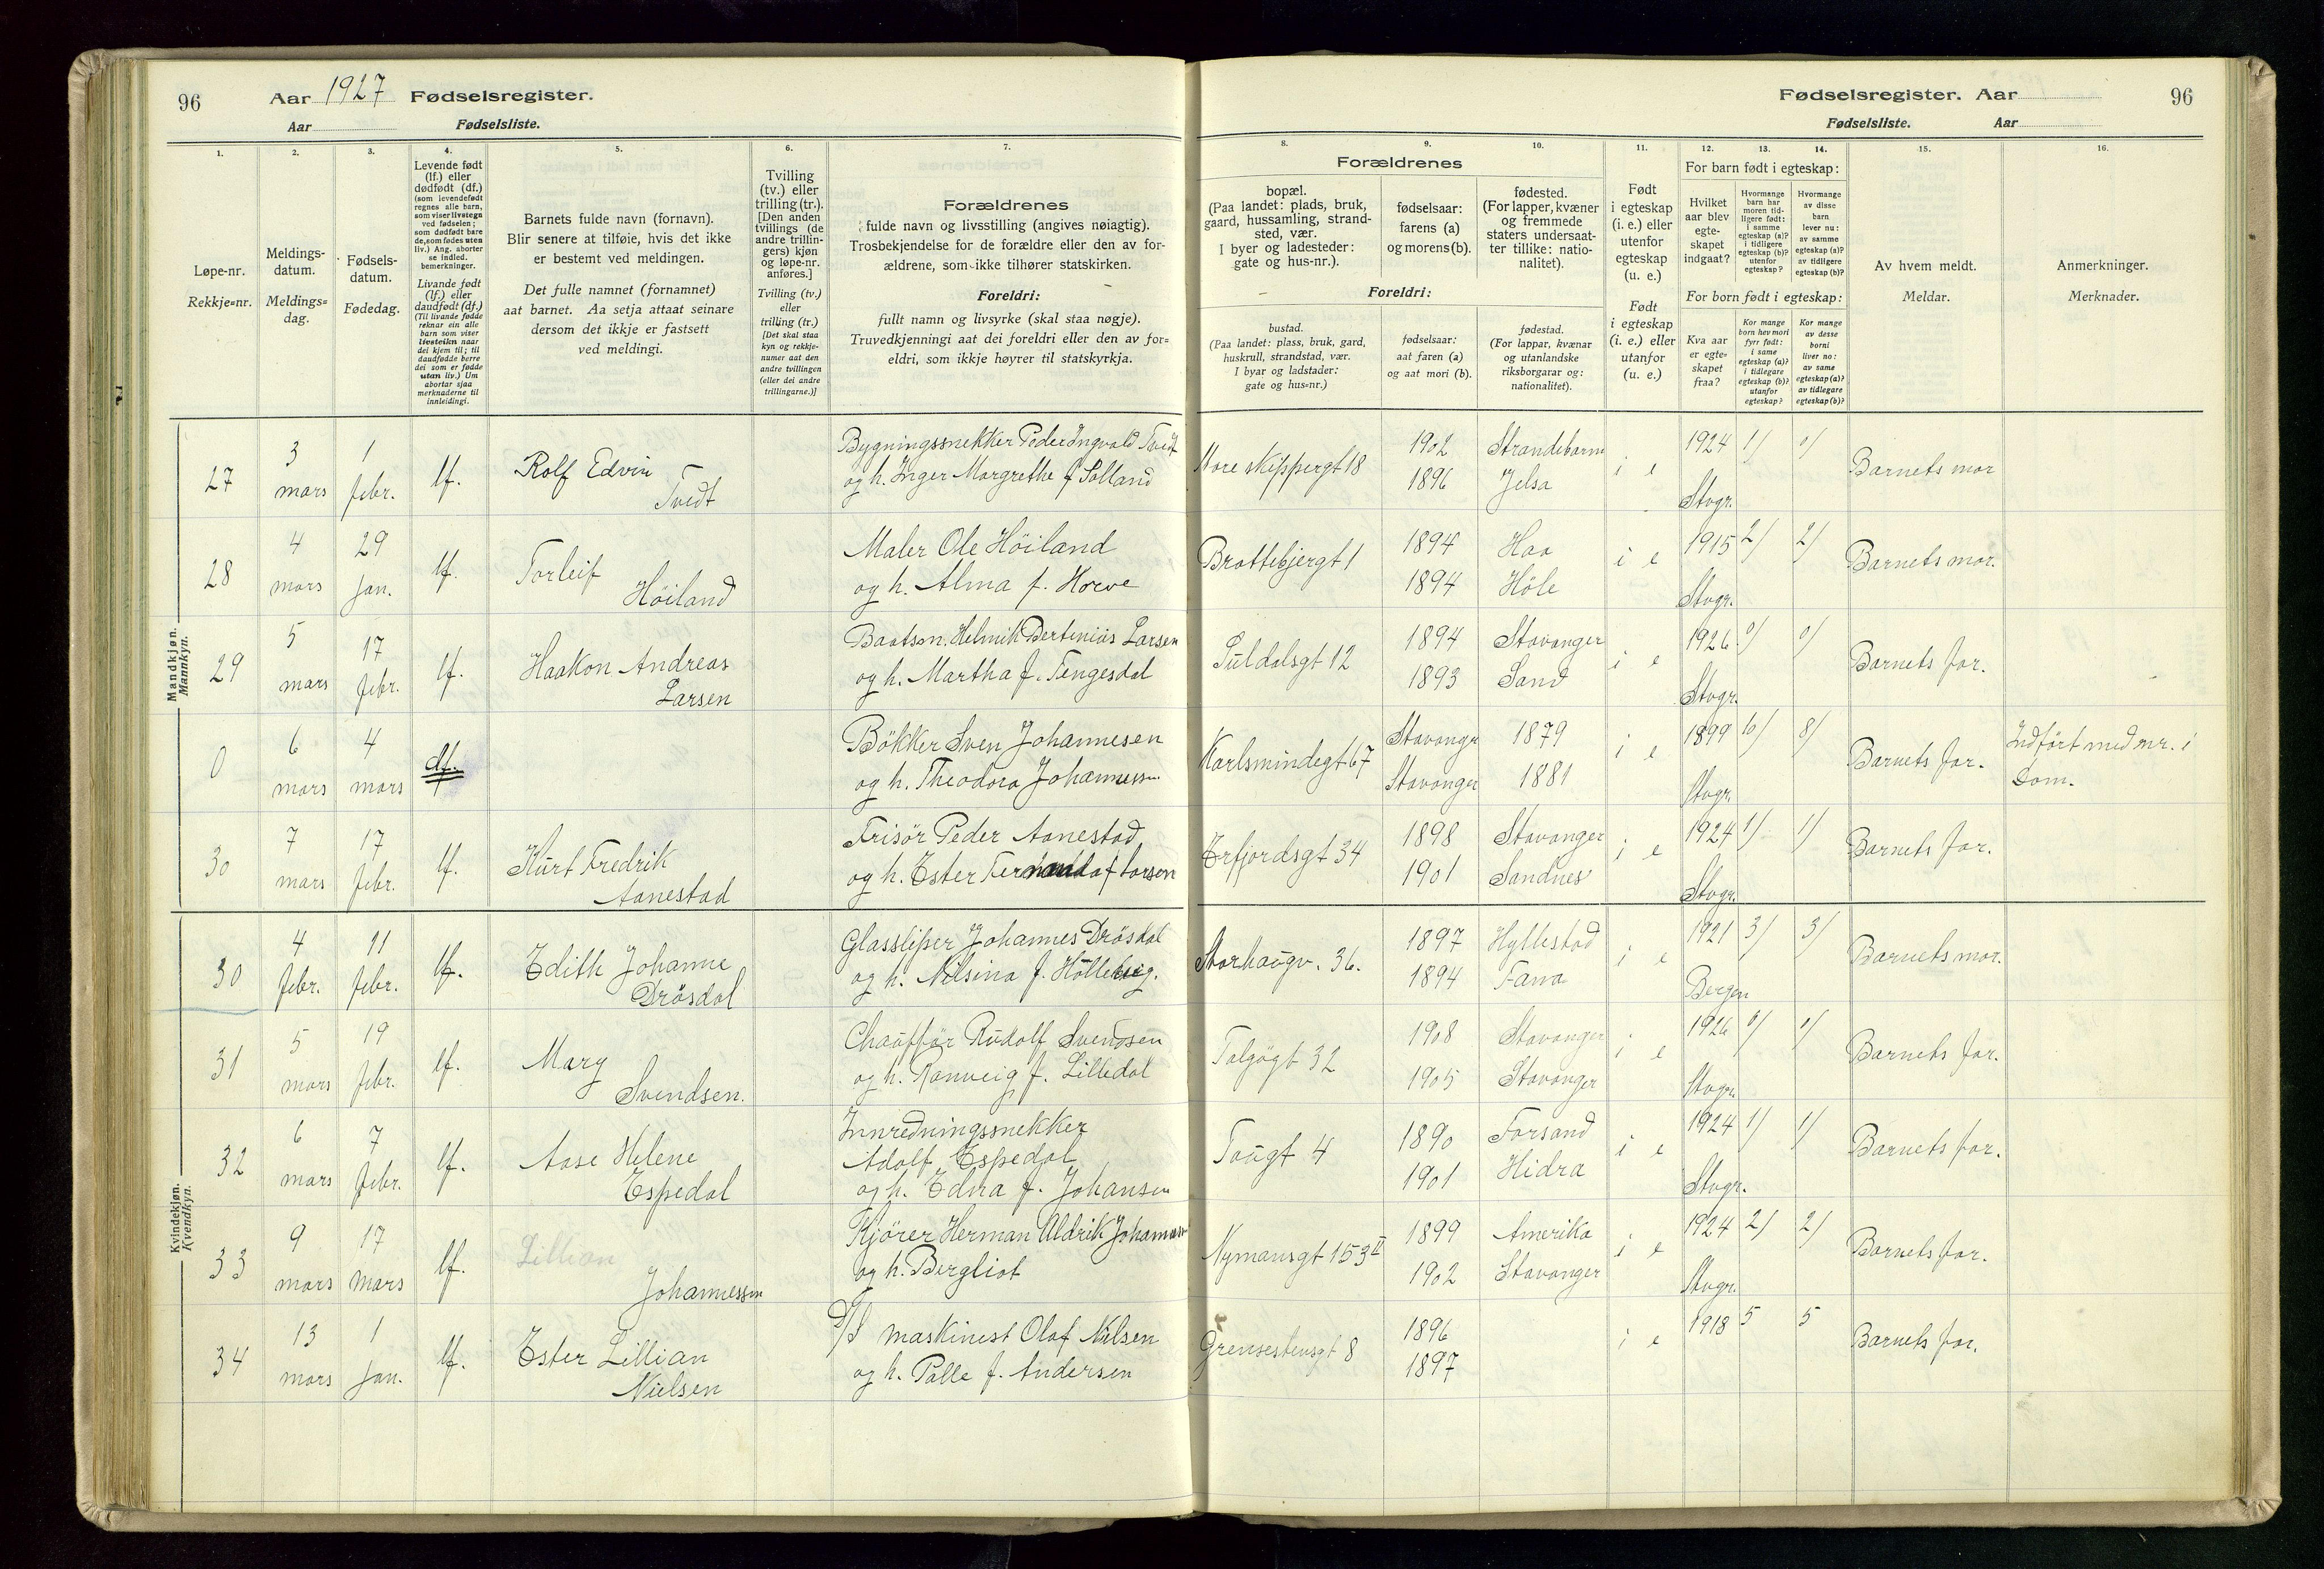 96 Aar 1927 Fødselsregister.
Aar Fødselsliste.
Fødselsregister. Aar 96
Fødselsliste. Aar
1.
Løpe-nr.
Rekkje=nr.
2.
Meldings-
datum.
Meldings=
dag.
3.
Fødsels-
datum.
Fødedag.
4.
Levende født
(lf.) eller
dødfødt (df.)
(som levendefødt
regnes alle barn,
som viser livstegn
ved fødselen;
som dødfødt bare
de, som fødes uten
liv.) Ang. aborter
se indled.
bemerkninger.
Livande født
(lf.) eller
daudfødt (df.)
(Til livande fødde
reknar ein alle
barn som viser
livsteikn naar
dei kjem til; til
daudfødde berre
dei som er fødde
utan liv.) Um
abortar sjaa
merknaderne til
innleidingi.
5.
Barnets fulde navn (fornavn).
Blir senere at tilføie, hvis det ikke
er bestemt ved meldingen.
Det fulle namnet (fornamnet)
aat barnet. Aa setja attaat seinare
dersom det ikkje er fastsett
ved meldingi.
6.
Tvilling
(tv.) eller
trilling (tr.).
[Den anden
tvillings (de
andre trillin-
gers) kjøn
og løpe-nr.
anføres.]
Tvilling (tv.)
eller
trilling (tr.)
[Det skal staa
kyn og rekkje-
numer aat den
andre tvillingen
(eller dei andre
trillingarne.)]
7.
Forældrenes
fulde navn og livsstilling (angives nøiagtig).
Trosbekjendelse for de forældre eller den av for-
ældrene, som ikke tilhører statskirken.
Foreldri:
fullt namn og livsyrke (skal staa nøgje).
Truvedkjenningi aat dei foreldri eller den av for=
eldri, som ikkje høyrer til statskyrkja.
Forældrenes
8.
bopæl.
(Paa landet: plads, bruk,
gaard, hussamling, strand-
sted, vær.
I byer og ladesteder:
gate og hus-nr.).
9.
fødselsaar:
farens (a)
og morens (b).
10.
fødested.
(For lapper, kvæner
og fremmede
staters undersaat-
ter tillike: natio-
nalitet).
Foreldri:
bustad.
(Paa landet: plass, bruk, gard,
huskrull, strandstad, vær.
I byar og ladstader:
gate og hus=nr.)
fødselsaar:
aat faren (a)
og aat mori (b).
fødestad.
(For lappar, kvænar
og utanlandske
riksborgarar og:
nationalitet).
11.
Født
i egteskap
(i. e.) eller
utenfor
egteskap
(u. e.)
Født
i egteskap
(i. e.) eller
utanfor
(u. e.)
12. 13. 14.
For barn født i egteskap:
Hvilket
aar blev
egte-
skapet
indgaat?
Hvormange
barn har
moren tid-
ligere født:
i samme
egteskap (a)?
i tidligere
egteskap (b)?
utenfor
egteskap?
Hvormange
av disse
barn
lever nu:
av samme
egteskap (a)?
av tidligere
egteskap (b)?
For born født i egteskap:
Kva aar
er egte=
skapet
fraa?
Kor mange
born hev mori
fyrr født:
i same
egteskap (a)?
i tidlegare
egteskap (b)?
utanfor
egteskap?
Kor mange
av desse
borni
liver no:
av same
egteskap (a)?
av tidlegare
egteskap (b)?
15.
Av hvem meldt.
Meldar.
16.
Anmerkninger.
Merknader.
Mandkjøn.
Mannkyn.
27 3 mars 1 febr. lf. Rolf Edvin
Tvedt
Bygningssnekker Peder Ingvald Tvedt
og h. Inger Margrethe f. Solland
Nore skippergt 18 1902 Strandebarm
1896 Jelsa
i e 1924 1/ 0/
Stvgr.
Barnets mor
28 4 mars 29 jan. lf. Torleif
Höiland
Maler Ole Höiland
og h. Alma f. Horve
Brattebjergt 1 1894 Haa
1894 Höle
i e 1915 2/ 2/
Stvgr.
Barnets mor.
29 5 mars 17 febr. lf. Haakon Andreas
Larsen
Baatsm. Helmik Berteniüs Larsen
og h. Martha f. Tengesdal
Suldalsgt 12 1894 Stavanger
1893 Sand
i e 1926 0/ 0/
Stvgr.
Barnets far.
0 6 mars 4 mars df.
Bökker Sven Johannesen
og h. Theodora Johannessen
Karlsmindegt 67 Stavanger 1879
Stavanger 1881
i e 1899 10/ 8/
Stvgr.
Barnets far.
Indfört med nr. i
Dom.
30 7 mars 17 febr. lf. Kurt Fredrik
Aanestad
Frisör Peder Aanestad
og h. Ester Fernanda f Larsen
Erfjordsgt 34 1898 Stavanger
1901 Sandnes
i e 1924 1/ 1/
Stvgr.
Barnets far.
Kvindekjøn.
Kvendkyn.
30 4 febr. 11 febr. lf. Edith Johanne
Drösdal
Glassliper Johannes Drösdal
og h. Nilsina f.
Storhaugv. 36. 1897 Hyllestad
1894 Fana
i e 1921 3/ 3/
Bergen
Barnets mor.
31 5 mars 19 febr. lf. Mary
Svendsen.
Chaufför Rudolf Svendsen
og h. Ranveig f. Lilledal
Talgögt 32 1908 Stavanger
1905 Stavanger
i e 1926 0/ 0/
Stvgr.
Barnets far.
32 6 mars 7 febr. lf. Aase Helene
Espedal
Innredningssnekker
Adolf Espedal
og h. Edna f. Johansen
Tougt 4 1890 Forsand
1901 Hidra
i e 1924 1/ 1/
Stvgr.
Barnets far.
33 9 mars 17 mars lf. Lillian
Johannessen
Kjörer Herman Uldrik Johannessen
og h. Bergliot
Nymansgt 153 II 1899 Amerika
1902 Stavanger
i e 1924 2/ 2/
Stvgr.
Barnets far.
34 13 mars 1 jan. lf. Ester Lillian
Nielsen
D/S maskinest Olaf Nilsen
og h. Palle f. Andersen
Grensestensgt 8 1896
1897
i e 1918 5 5
Barnets far.